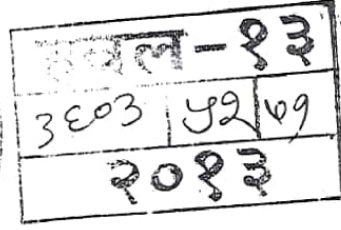 हवल-१३
३६०३ ५२ ७१
२०१३